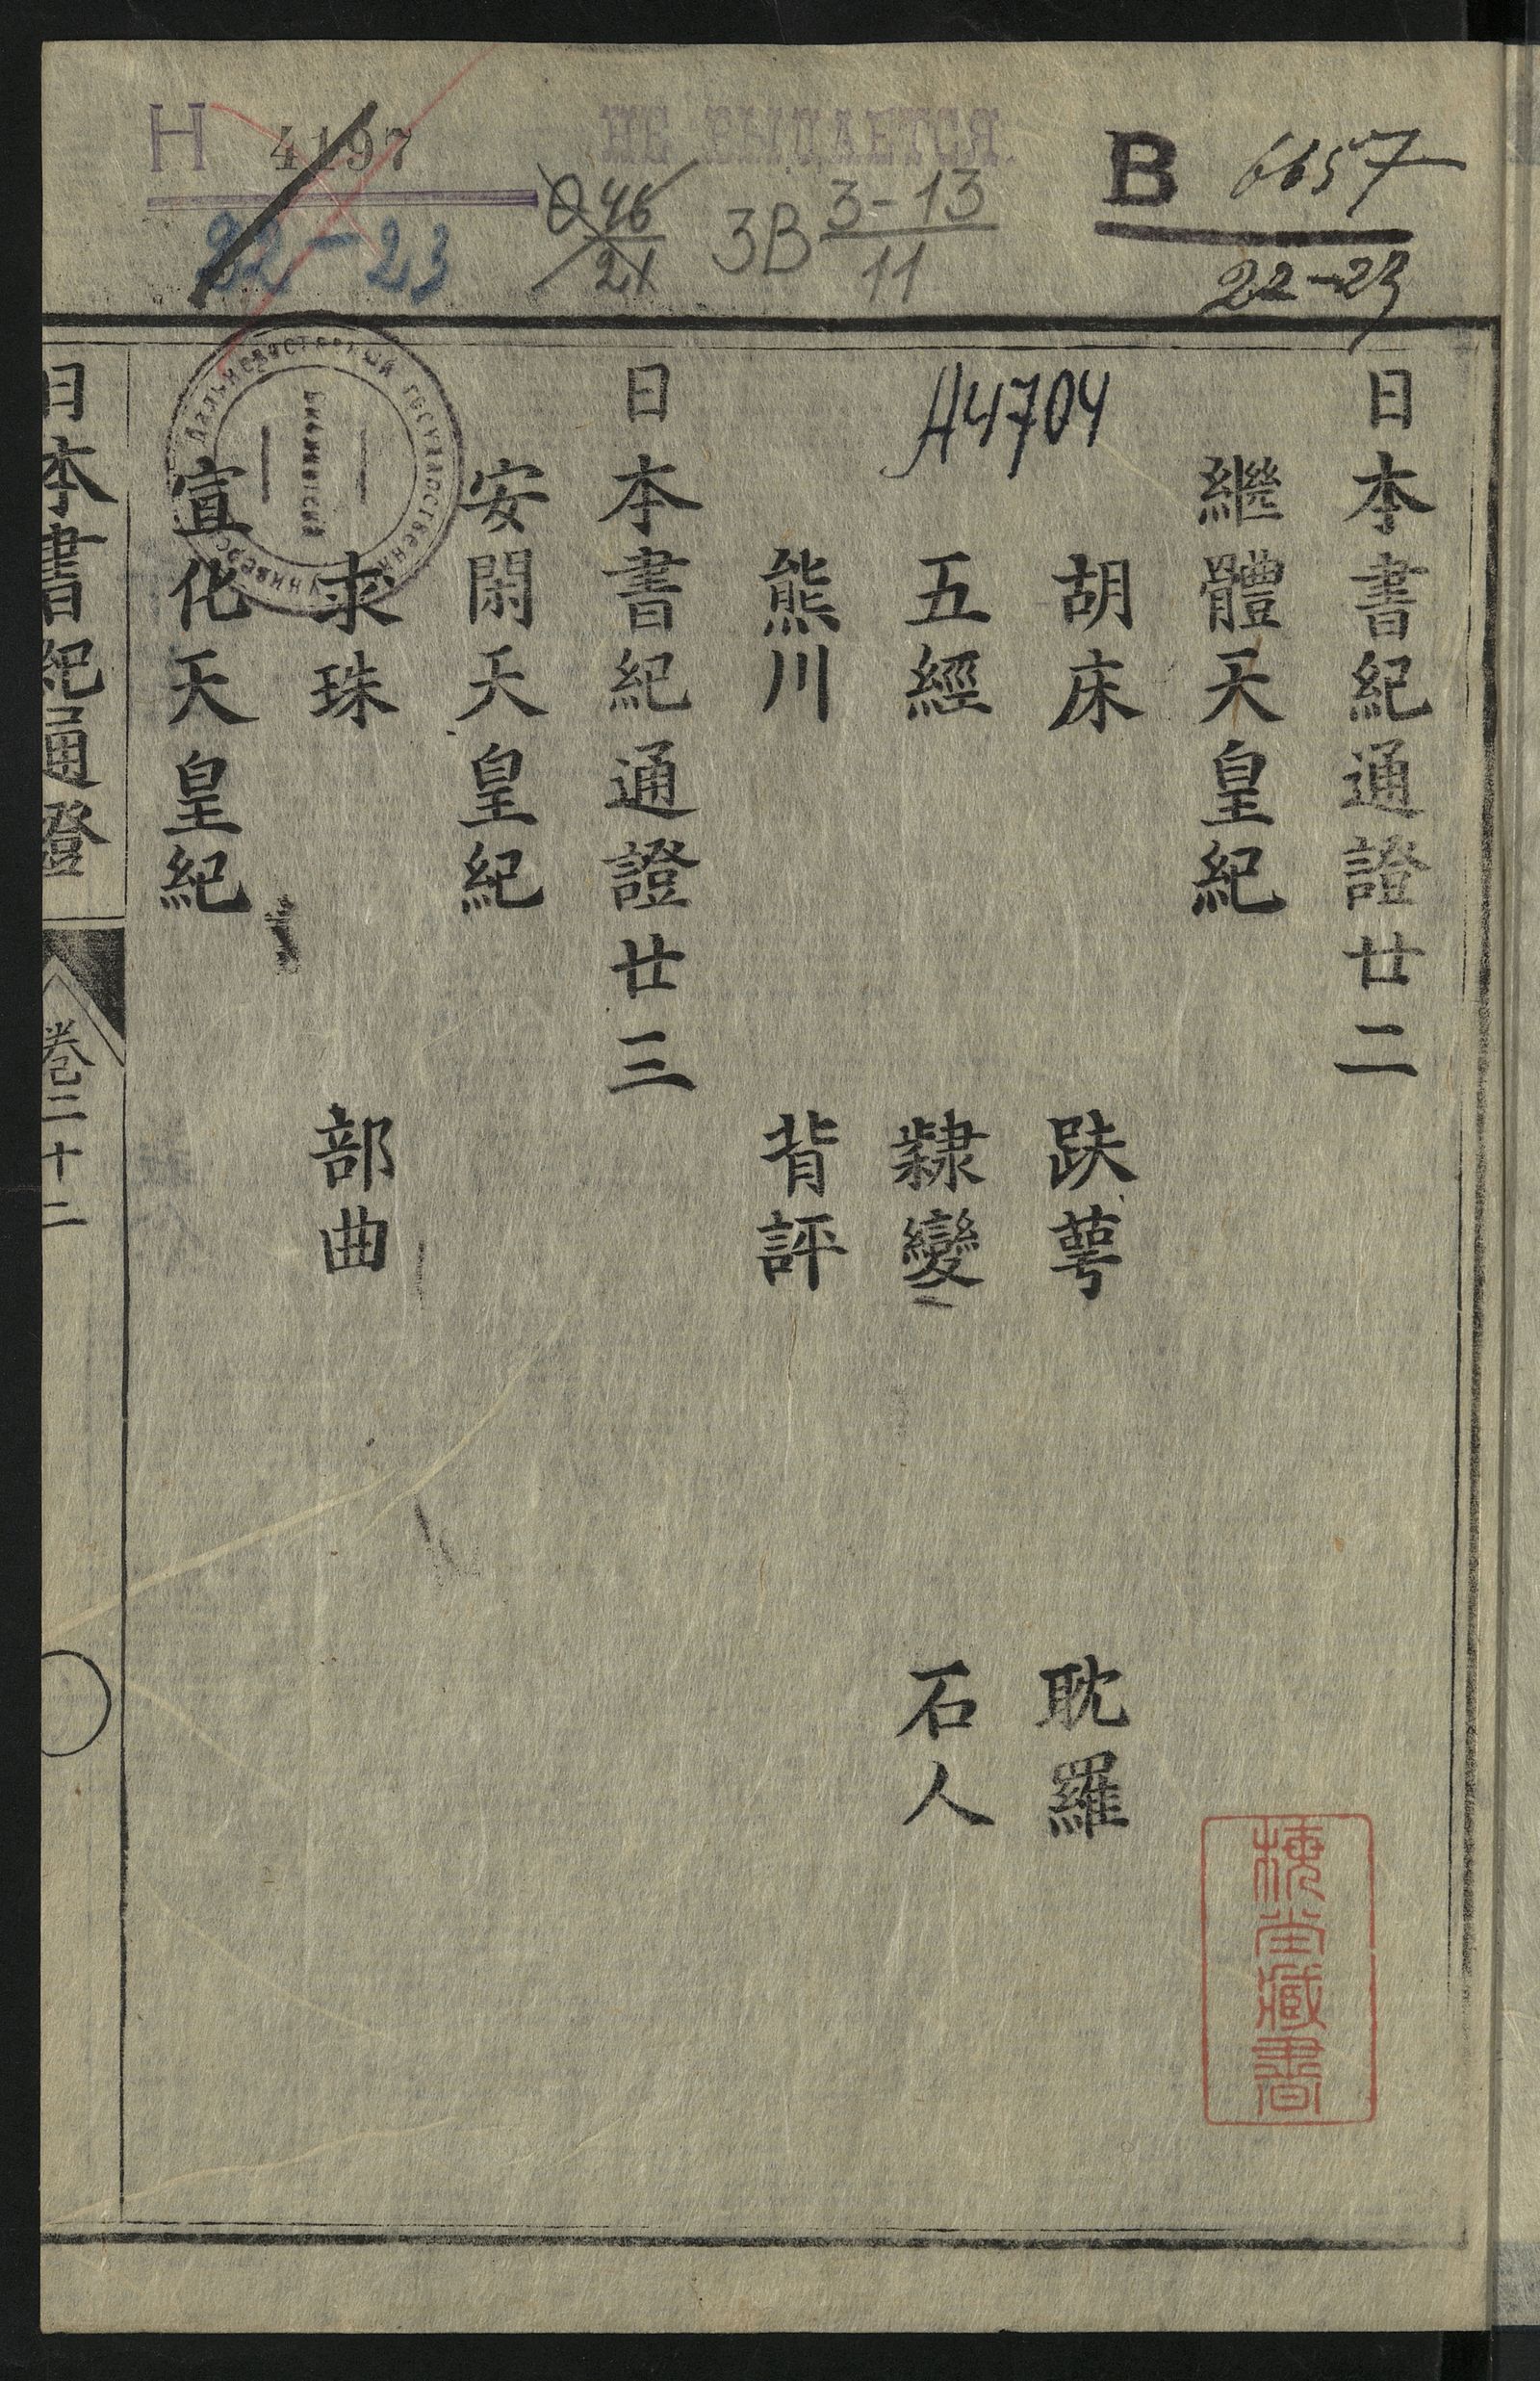 H 4197
22-23
НЕ ВЫДАЕТСЯ.
3В 3-13
11
В 6657
22-23
A4704
日本書紀通證廿二
繼體天皇紀
胡床 趺萼 耽羅
五經 隸變 石人
熊川 背評
日本書紀通證廿三
安閑天皇紀
求珠 部曲
宣化天皇紀
日本書紀通證 卷二十二
藏書